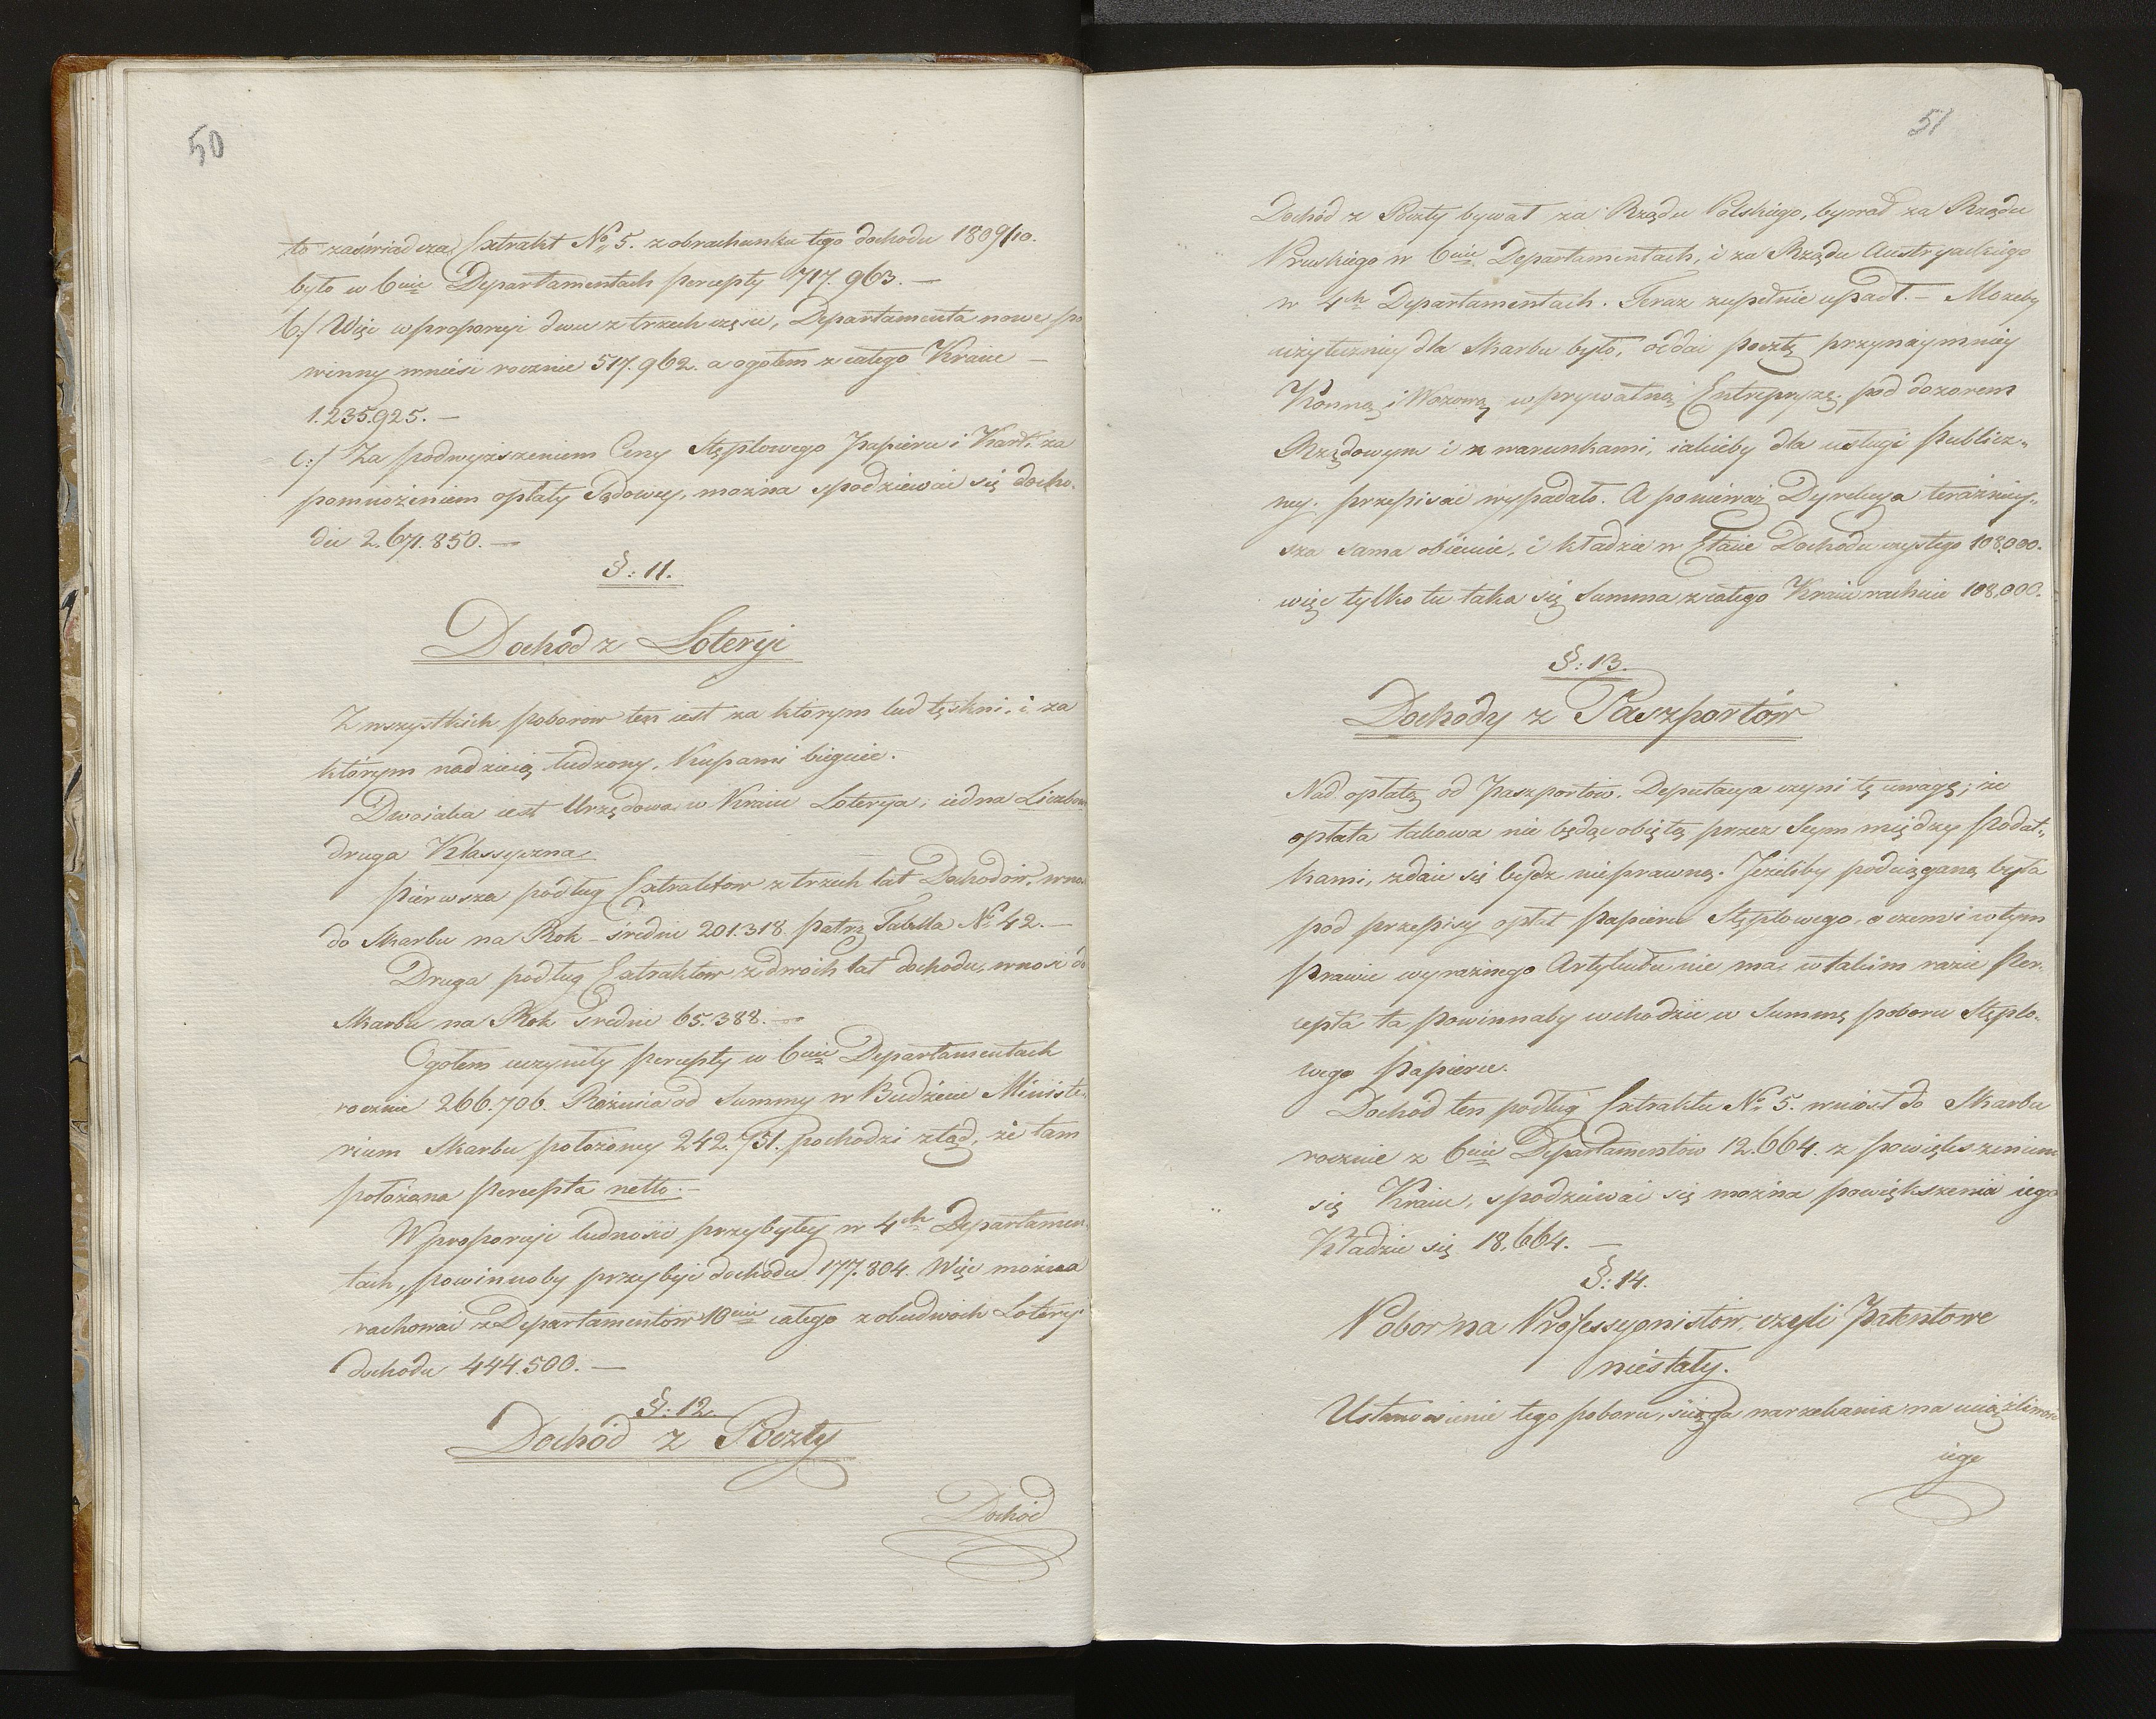 50
to zaświadcza Extrakt No 5. z obrachunku tego dochodu 1809/10.
było w 6ciu Departamentach percepty 717.963.—
b:/ Więc w proporcyi dwu z trzech części, Departamenta nowe po
winny wnieść rocznie 517.962. a ogołem z całego Kraiu —
1.235.925.—
c:/ Za podwyższeniem Ceny Stęplowego Papieru i Kart: za
pomnożeniem opłaty Sądowey, można spodziewać się docho-
du 2.671.850.—
§: 11.
Dochód z Loteryi
Z wszystkich poborow ten iest za ktorym lud tęskni, i za
którym nadzieią łudzony, Kupami bieguie.
Dwoiaka iest Urzędowa w Kraiu Loterya; iedna Liczbow
druga Klassyczna.
Pierwsza podług Extraktow z trzech lat Dochodów, wno
do Skarbu na Rok - średni 201.318. patrz Tabella No 42.—
Druga podług Extraktow z dwóch lat dochodu, wnosi do
Skarbu na Rok średni 65.388.—
Ogołem uczyniły percepty w 6ciu Departamentach
rocznie 266.706. Rożnica od Summy w Budżecie Ministe-
rium Skarbu położoney 242.751. pochodzi ztąd, że tam
położona percepta netto.—
W proporcyi ludności przybyłey w 4ch Departamen
tach, powinnoby przybyć dochodu 177.804. Więc można
rachować z Departamentów 10ciu całego z obudwóch Lotery
dochodu 444.500.—
§: 12.
Dochód z Poczty
Dochód
51
Dochód z Poczty bywał za Rządu Polskiego, bywał za Rządu
Pruskiego w 6ciu Departamentach, i za Rządu Austryackiego
w 4ch Departamentach. Teraz zupełnie upadł.— Możeby
użyteczniey dla Skarbu było, oddać pocztę przynaymniey
Konną i Wozową w prywatną Entrepryzę, pod dozorem
Rządowym i z warunkami, iakieby dla usługi Publicz-
ney przepisać wypadało. A ponieważ Dyrekcya terażniey-
sza sama obiecuie, i kładzie w Etacie Dochodu czystego 108,000.
więc tylko tu taka się Summa z całego Kraiu rachuie 108,000.
§: 13.
Dochody z Paszportów
Nad opłatą od Paszportow. Deputacya czyni tę uwagę; że
opłata takowa nie będąc obiętą przez Seym między podat-
kami, zdaie się bydz nieprawną. Jeżeliby podciąganą była
pod przepisy opłat papieru Stęplowego, o czem i w tym
prawie wyraźnego Artykułu nie ma, w takim razie Per-
cepta ta powinnaby wchodzić w Summę poboru Stęplo-
wego papieru.
Dochód ten podług Extraktu No 5. wniósł do Skarbu
rocznie z 6ciu Departamentow 12.664. z powiększeniem
się Kraiu, spodziewać się można powiększenia iego
Kładzie się 18,664.—
§: 14.
Pobor na Professyonistów czyli Patentowe
niestały.
Ustanowienie tego poboru, ściąga narzekania na uciążliwość
iego